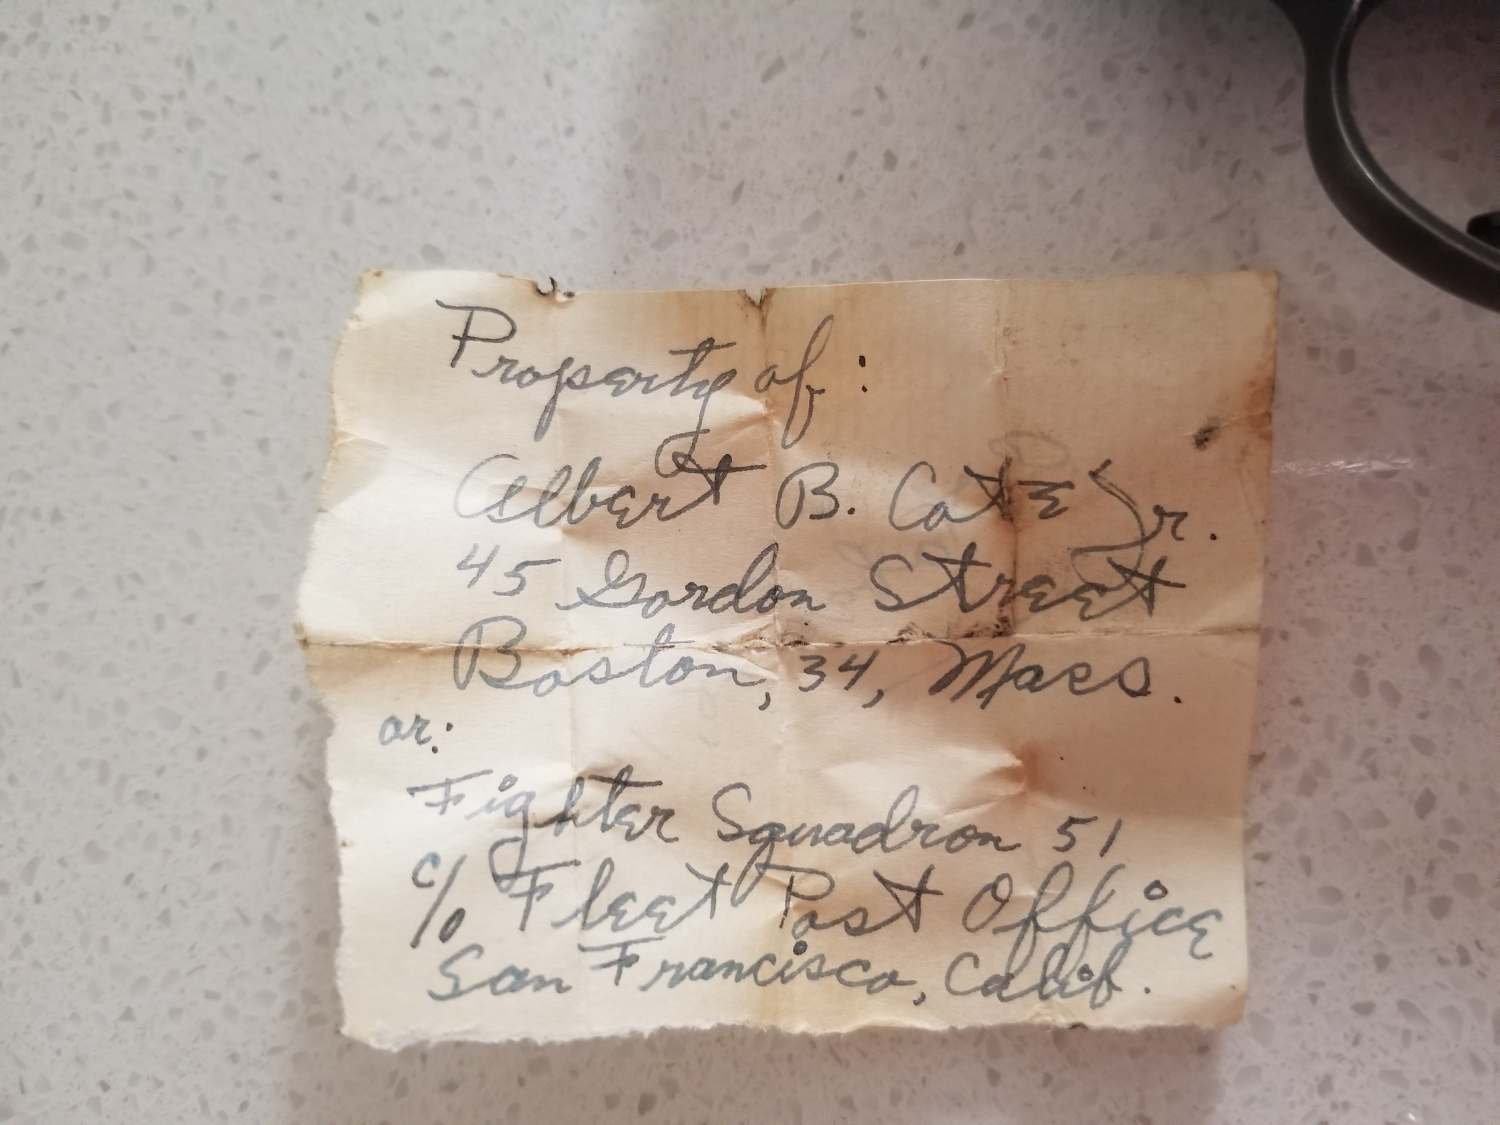 Property of:
Albert B. Cate Jr.
45 Gordon Street
Boston, 34, Mass.
or:
Fighter Squadron 51
c/o Fleet Post Office
San Francisco, Calif.